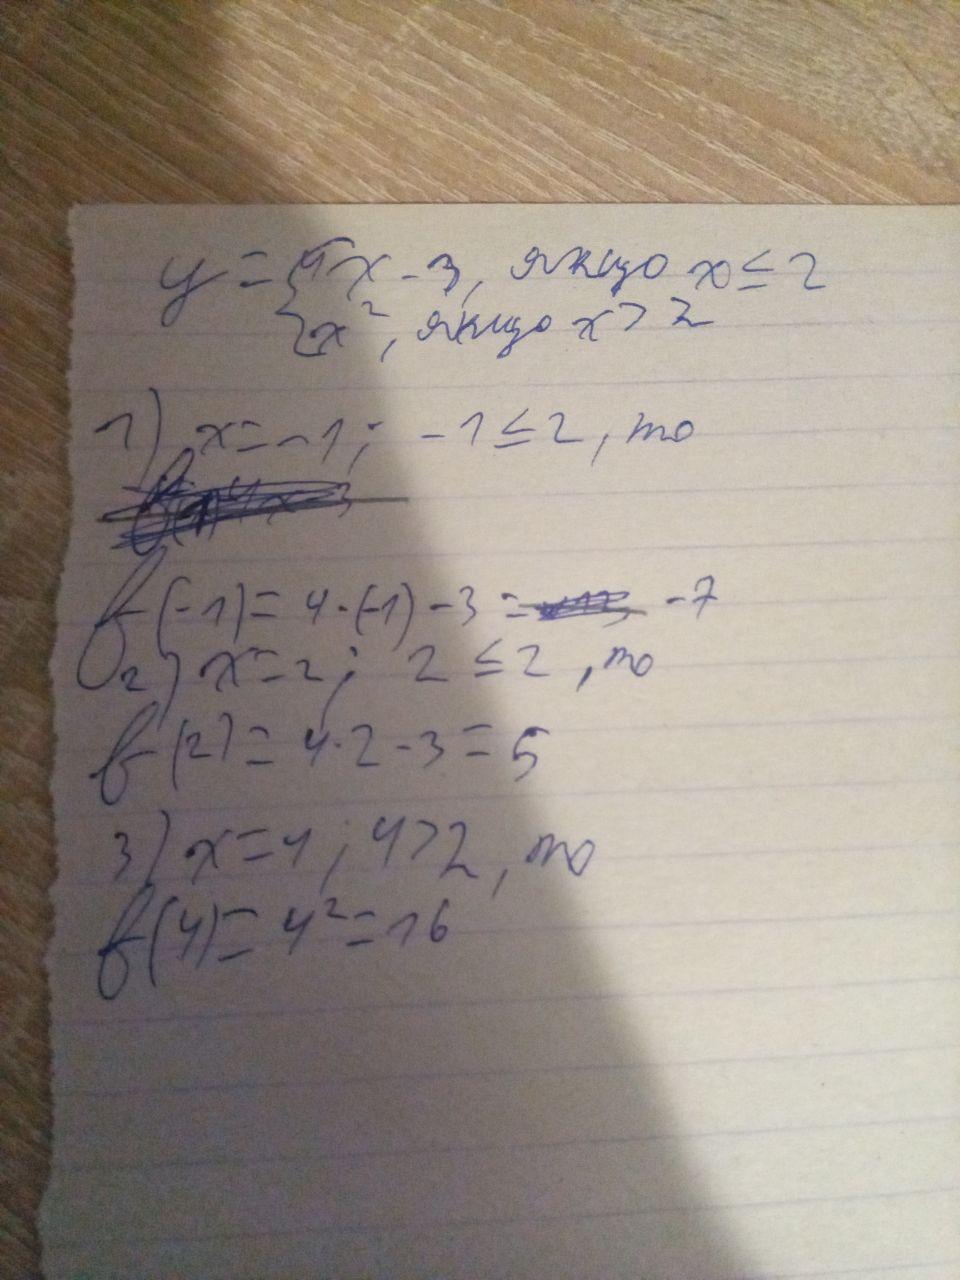 y = { 4x - 3, якщо x ≤ 2
{ x², якщо x > 2
1) x = -1; -1 ≤ 2, то
f(-1) = 4·(-1) - 3 = -7
2) x = 2; 2 ≤ 2, то
f(2) = 4·2 - 3 = 5
3) x = 4; 4 > 2, то
f(4) = 4² = 16